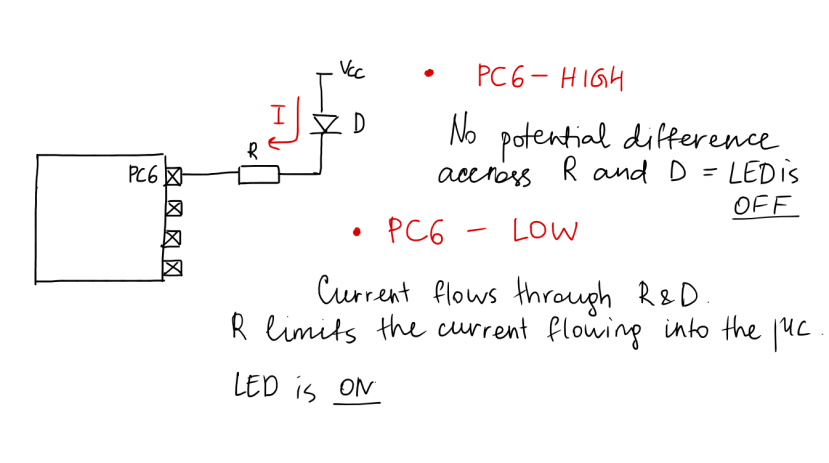 Vcc
I
D
R
PC6
• PC6 - HIGH
No potential difference
accross R and D = LED is
OFF
• PC6 - LOW
Current flows through R & D.
R limits the current flowing into the µC.
LED is ON